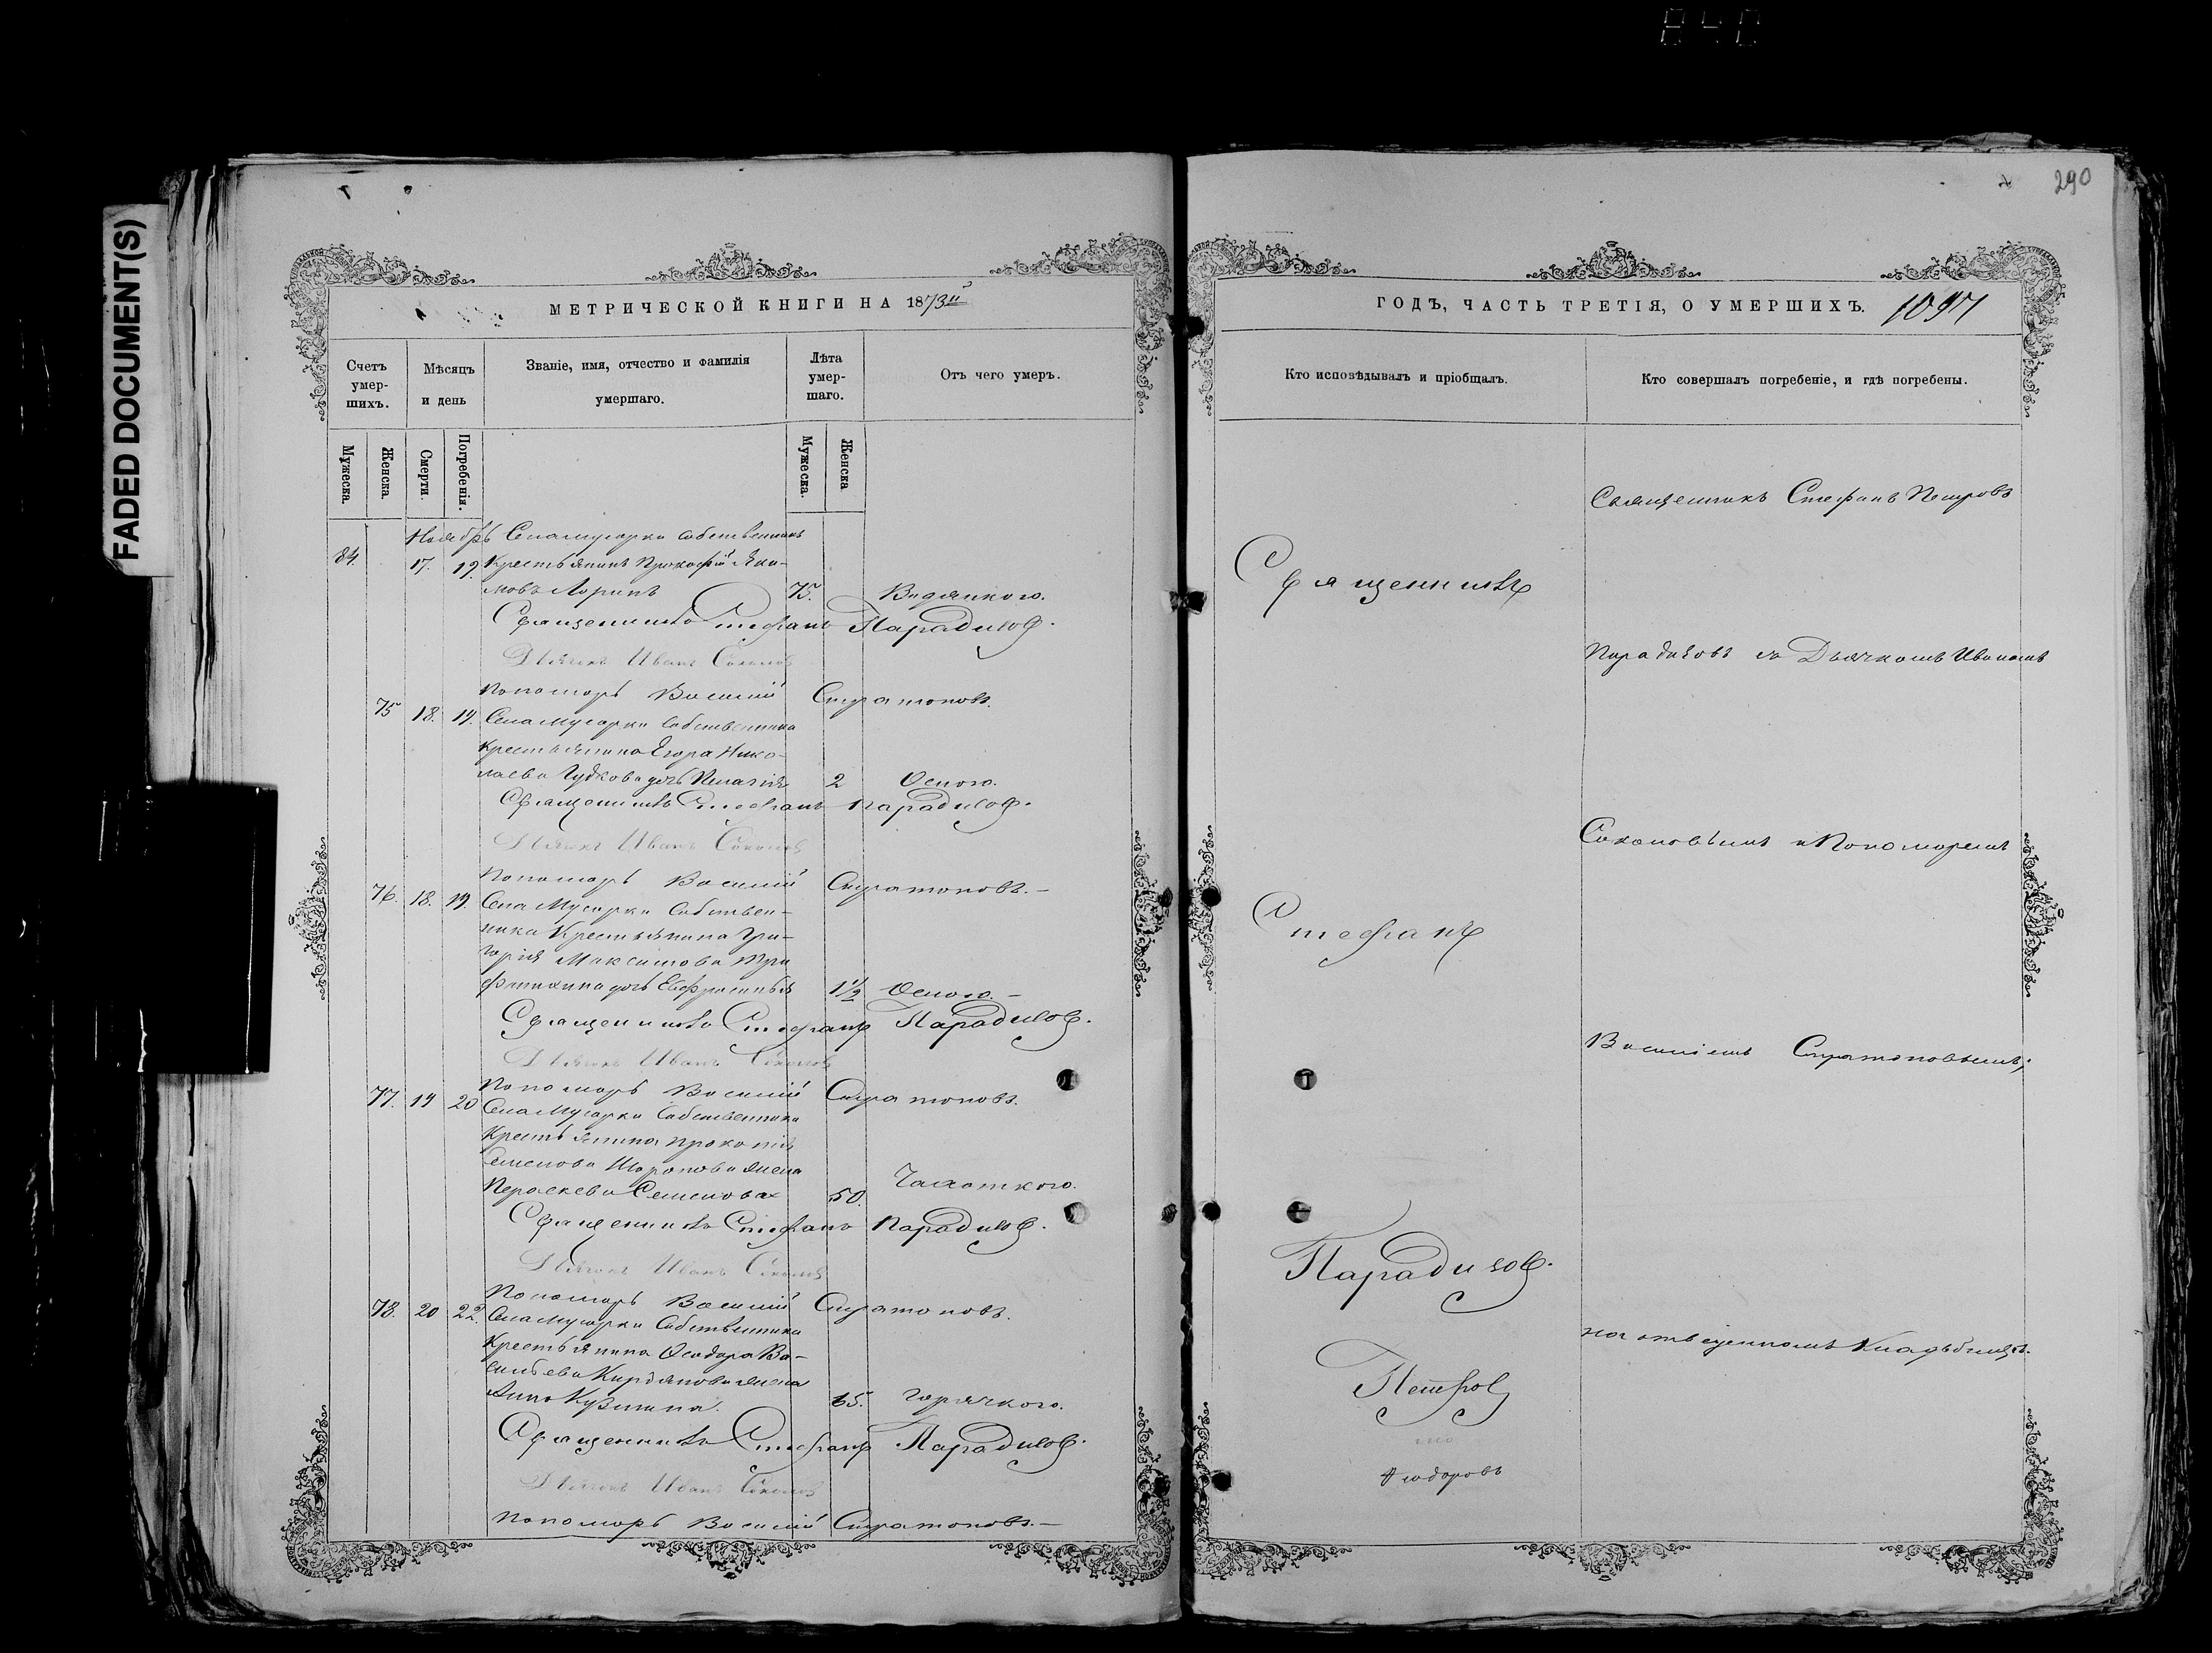 840
290
FADED DOCUMENT(S)
МЕТРИЧЕСКОЙ КНИГИ НА 1873й
Счетъ умер-шихъ.
Мѣсяцъ и день
Званіе, имя, отчество и фамилія умершаго.
Лѣта умер-шаго.
Отъ чего умеръ.
Мужеска.
Женска.
Смерти.
Погребенія.
Мужеска.
Женска
Ноябрь Села Мусорки собственникъ
84. 17. 19. Крестьянинъ Прокофій Яки-
мовъ Ларинъ 75. Водянкою.
Священникъ Стефанъ Парадизов.
Дьячекъ Иванъ Соколовъ
Пономарь Василій Стратоновъ.
75 18. 19. Села Мусорки собственника
крестьянина Егора Нико-
лаева Гудкова дочь Пелагія 2 Оспою.
Священникъ Стефанъ Парадизов.
Дьячекъ Иванъ Соколовъ
Пономарь Василій Стратоновъ.—
76. 18. 19. Села Мусорки собствен-
ника крестьянина Гри-
горія Максимова
дочь Евфросинья 1½ Оспою.—
Священникъ Стефанъ Парадизов.
Дьячекъ Иванъ Соколовъ
Пономарь Василій Стратоновъ.
77. 19 20 Села Мусорки собственника
крестьянина Прокопія
Семенова жена
Пераскева Семенова 50. Чахоткою.
Священникъ Стефанъ Парадизов.
Дьячекъ Иванъ Соколовъ
Пономарь Василій Стратоновъ.
78. 20 22. Села Мусорки собственника
крестьянина Ѳеодора Ва-
сильева Кирдянова жена
Анна Кузмина. 65. Горячкою.
Священникъ Стефанъ Парадизов.
Дьячекъ Иванъ Соколовъ
Пономарь Василій Стратоновъ.—
ГОДЪ, ЧАСТЬ ТРЕТІЯ, О УМЕРШИХЪ. 1097
Кто исповѣдывалъ и пріобщалъ.
Кто совершалъ погребеніе, и гдѣ погребены.
Священникъ Стефанъ Петровъ
Священникъ
Парадизовъ съ Дьячкомъ Иваномъ
Соколовымъ и Пономаремъ
Стефанъ
Василіемъ Стратоновымъ;
Парадизов.
на отведенномъ Кладбищѣ.
Петров
Ѳеодоровъ